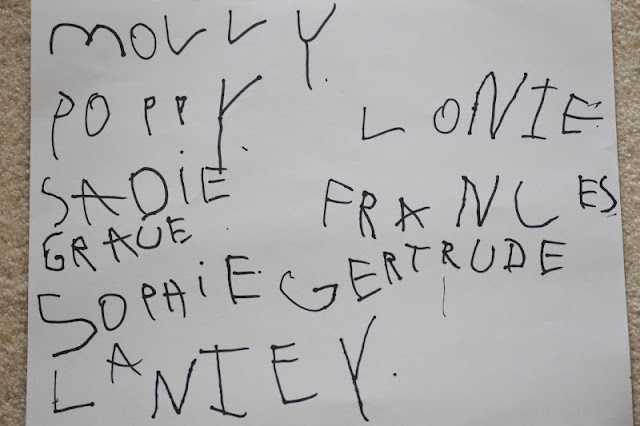 MOLLY.
POPPY. LONIE
SADIE FRANCES
GRACE.
SOPHIE. GERTRUDE
LANIEY.